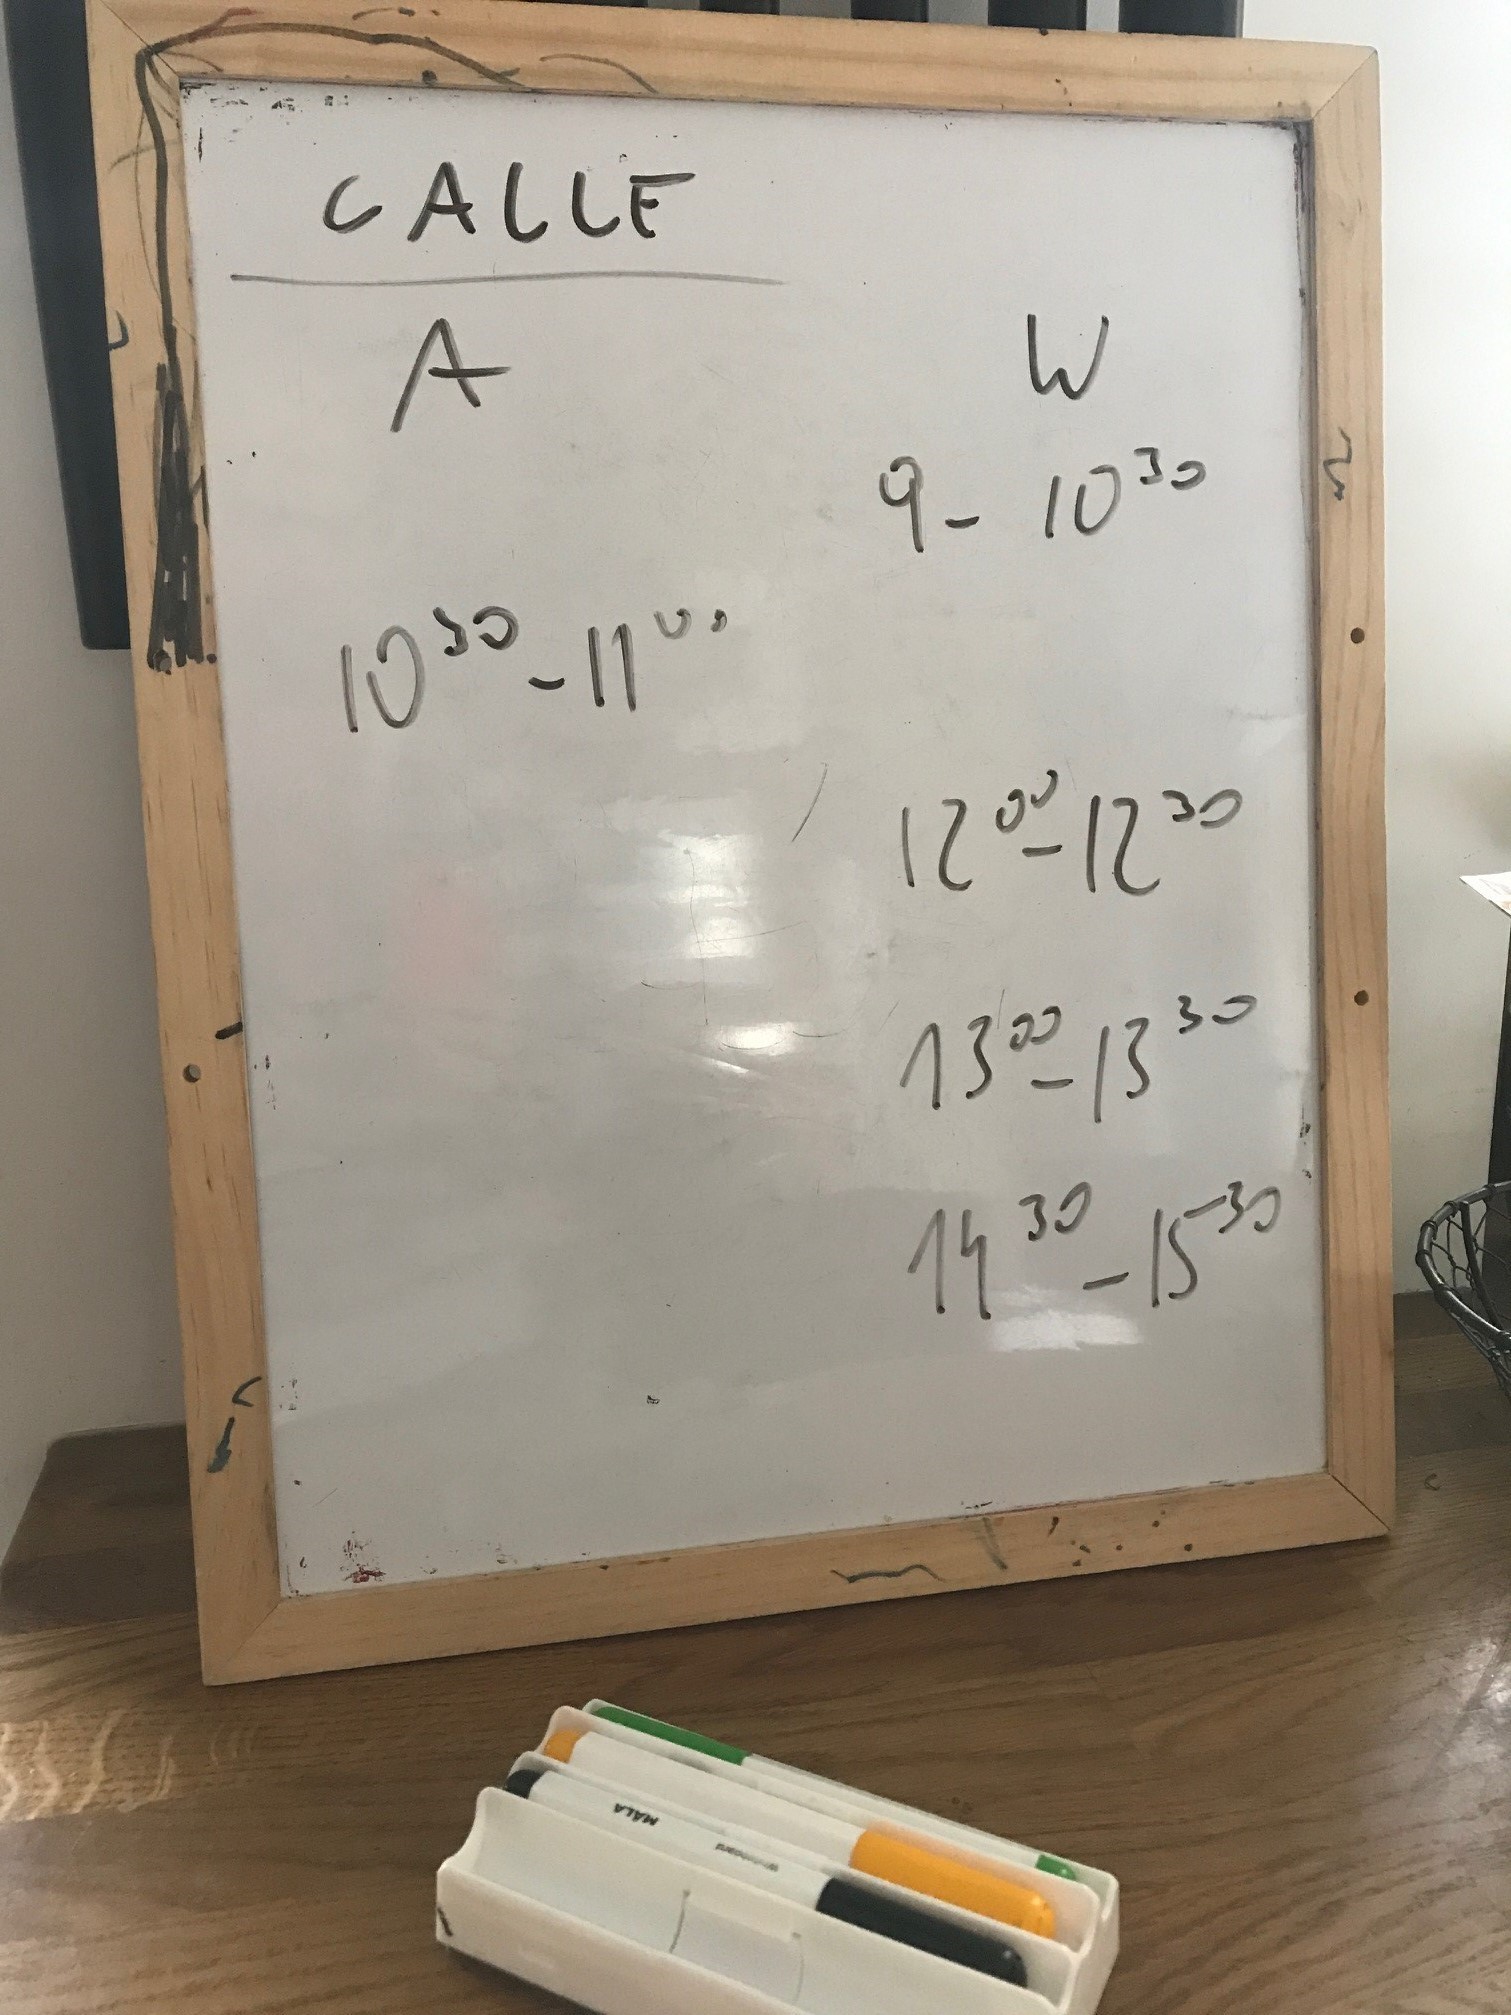 CALLE
A W
9 - 10 30
10 30 - 11 00
12 00 - 12 30
13 00 - 13 30
14 30 - 15 30
MÅLA
Whiteboard